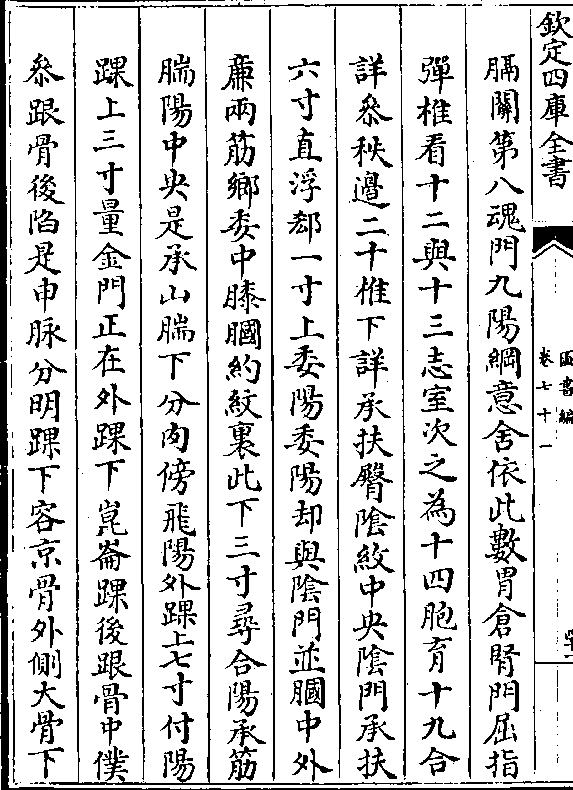 欽定四庫全書
圖書編
卷七十一
膈關第八魂門九陽綱意舍依此數胃倉腎門屈指
彈椎看十二與十三志室次之為十四胞肓十九合
詳叅秩邊二十椎下詳承扶臀陰紋中央陰門承扶
六寸直浮郄一寸上委陽委陽却與陰門並膕中外
亷兩筋鄉委中膝膕約紋裏此下三寸尋合陽承筋
腨陽中央是承山腨下分肉傍飛陽外踝上七寸付陽
踝上三寸量金門正在外踝下崑崙踝後跟骨中僕
叅跟骨後陷是申脉分明踝下容京骨外側大骨下